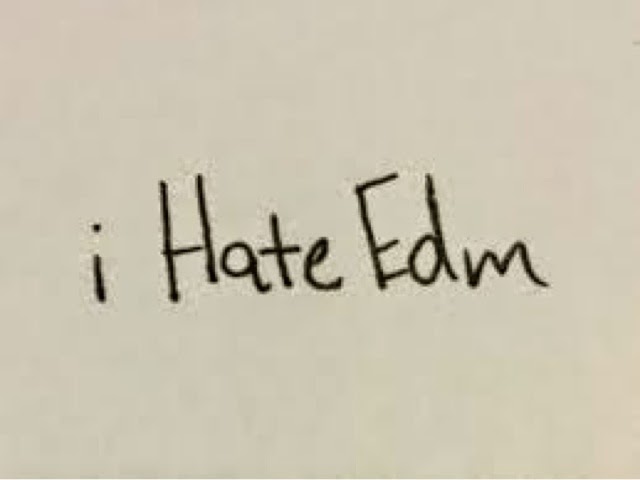 i Hate Edm